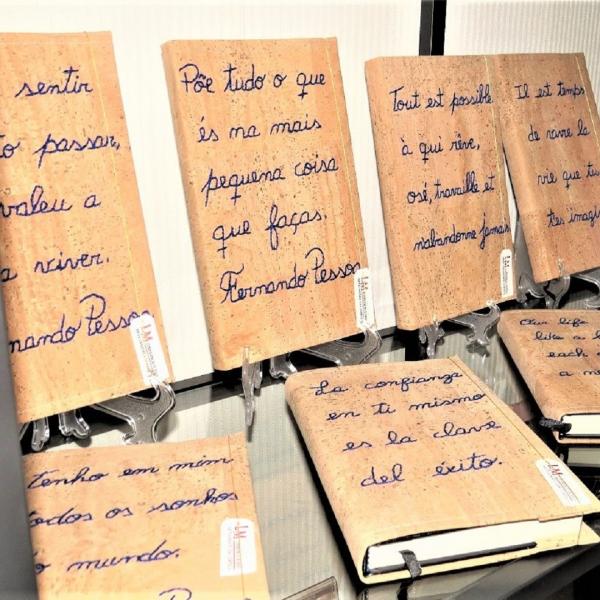 sentir
passar,
valeu a
viver.
Pesso
Põe tudo o que
és na mais
pequena coisa
que faças.
Fernando Pesso
Tout est possible
à qui rêve,
osé, travaille et
n'abandonne jamais
Il est temps
de vivre la
vie que tu
t'es imagi
Our life
like a
each
a
La confianza
en ti mismo
es la clave
del éxito.
tenho em mim
todos os sonhos
mundo.
LM
LM
LM
LM
LM